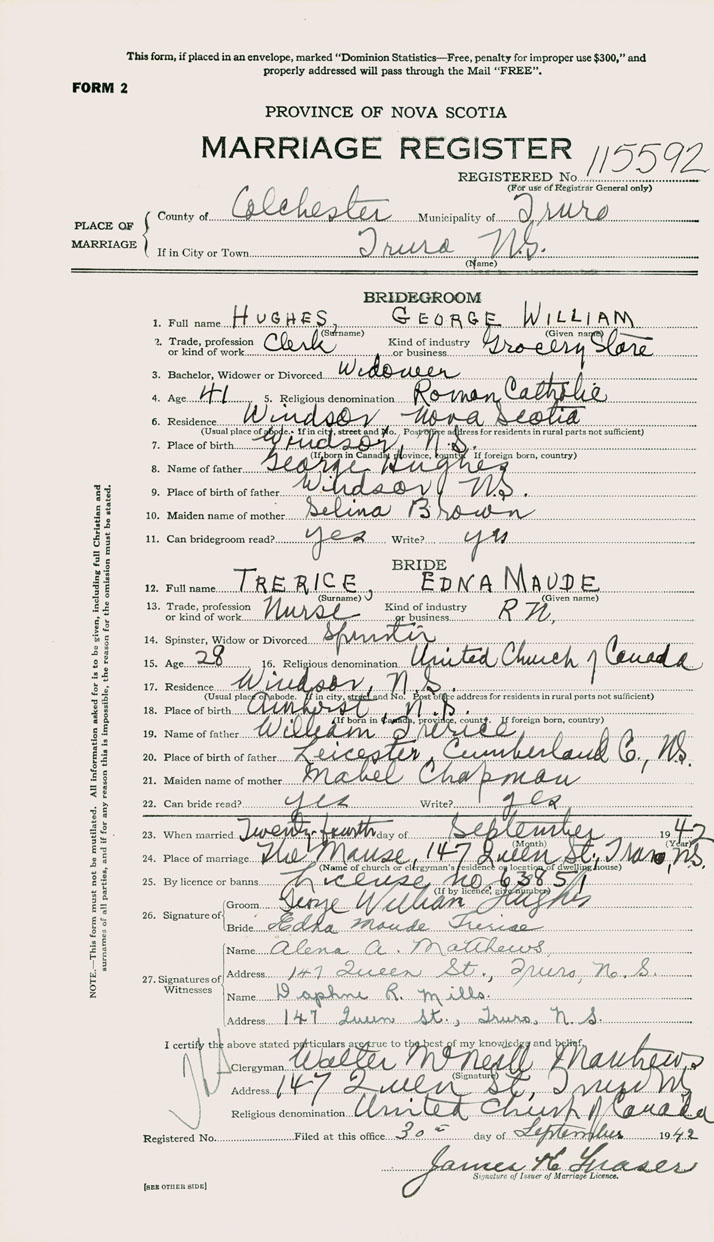 This form, if placed in an envelope, marked "Dominion Statistics—Free, penalty for improper use $300," and
properly addressed will pass through the Mail "FREE".
FORM 2
PROVINCE OF NOVA SCOTIA
MARRIAGE REGISTER
REGISTERED No. 115592
(For use of Registrar General only)
PLACE OF MARRIAGE
County of Colchester Municipality of Truro
If in City or Town Truro N.S.
(Name)
BRIDEGROOM
1. Full name HUGHES, GEORGE WILLIAM
(Surname) (Given name)
2. Trade, profession or kind of work Clerk Kind of industry or business Grocery Store
3. Bachelor, Widower or Divorced Widower
4. Age 41 5. Religious denomination Roman Catholic
6. Residence Windsor Nova Scotia
(Usual place of abode. If in city, street and No. Post office address for residents in rural parts not sufficient)
7. Place of birth Windsor, N.S.
(If born in Canada, province, county. If foreign born, country)
8. Name of father George Hughes
9. Place of birth of father Windsor, N.S.
10. Maiden name of mother Selina Brown
11. Can bridegroom read? yes Write? yes
BRIDE
12. Full name TRERICE, EDNA MAUDE
(Surname) (Given name)
13. Trade, profession or kind of work Nurse Kind of industry or business R.N.
14. Spinster, Widow or Divorced Spinster
15. Age 28 16. Religious denomination United Church of Canada
17. Residence Windsor, N.S.
(Usual place of abode. If in city, street and No. Post office address for residents in rural parts not sufficient)
18. Place of birth Amherst, N.S.
(If born in Canada, province, county. If foreign born, country)
19. Name of father William Trerice
20. Place of birth of father Leicester, Cumberland Co., N.S.
21. Maiden name of mother Mabel Chapman
22. Can bride read? yes Write? yes
23. When married Twenty-fourth day of September 1942
(Month) (Year)
24. Place of marriage The Manse, 147 Queen St., Truro, N.S.
(Name of church or clergyman's residence or location of dwelling house)
25. By licence or banns License no. 63851
(If by licence, give number)
26. Signature of
Groom George William Hughes
Bride Edna Maude Trerice
27. Signatures of Witnesses
Name Alena A. Matthews
Address 147 Queen St., Truro, N.S.
Name Daphne R. Mills.
Address 147 Queen St., Truro, N.S.
I certify the above stated particulars are true to the best of my knowledge and belief.
Clergyman Walter McNeill Matthews
(Signature)
Address 147 Queen St., Truro NS
Religious denomination United Church of Canada
Registered No. Filed at this office 30th day of September 1942
James K Fraser
Signature of Issuer of Marriage Licence.
[SEE OTHER SIDE]
NOTE.—This form must not be mutilated. All information asked for is to be given, including full Christian and
surnames of all parties, and if for any reason this is impossible, the reason for the omission must be stated.